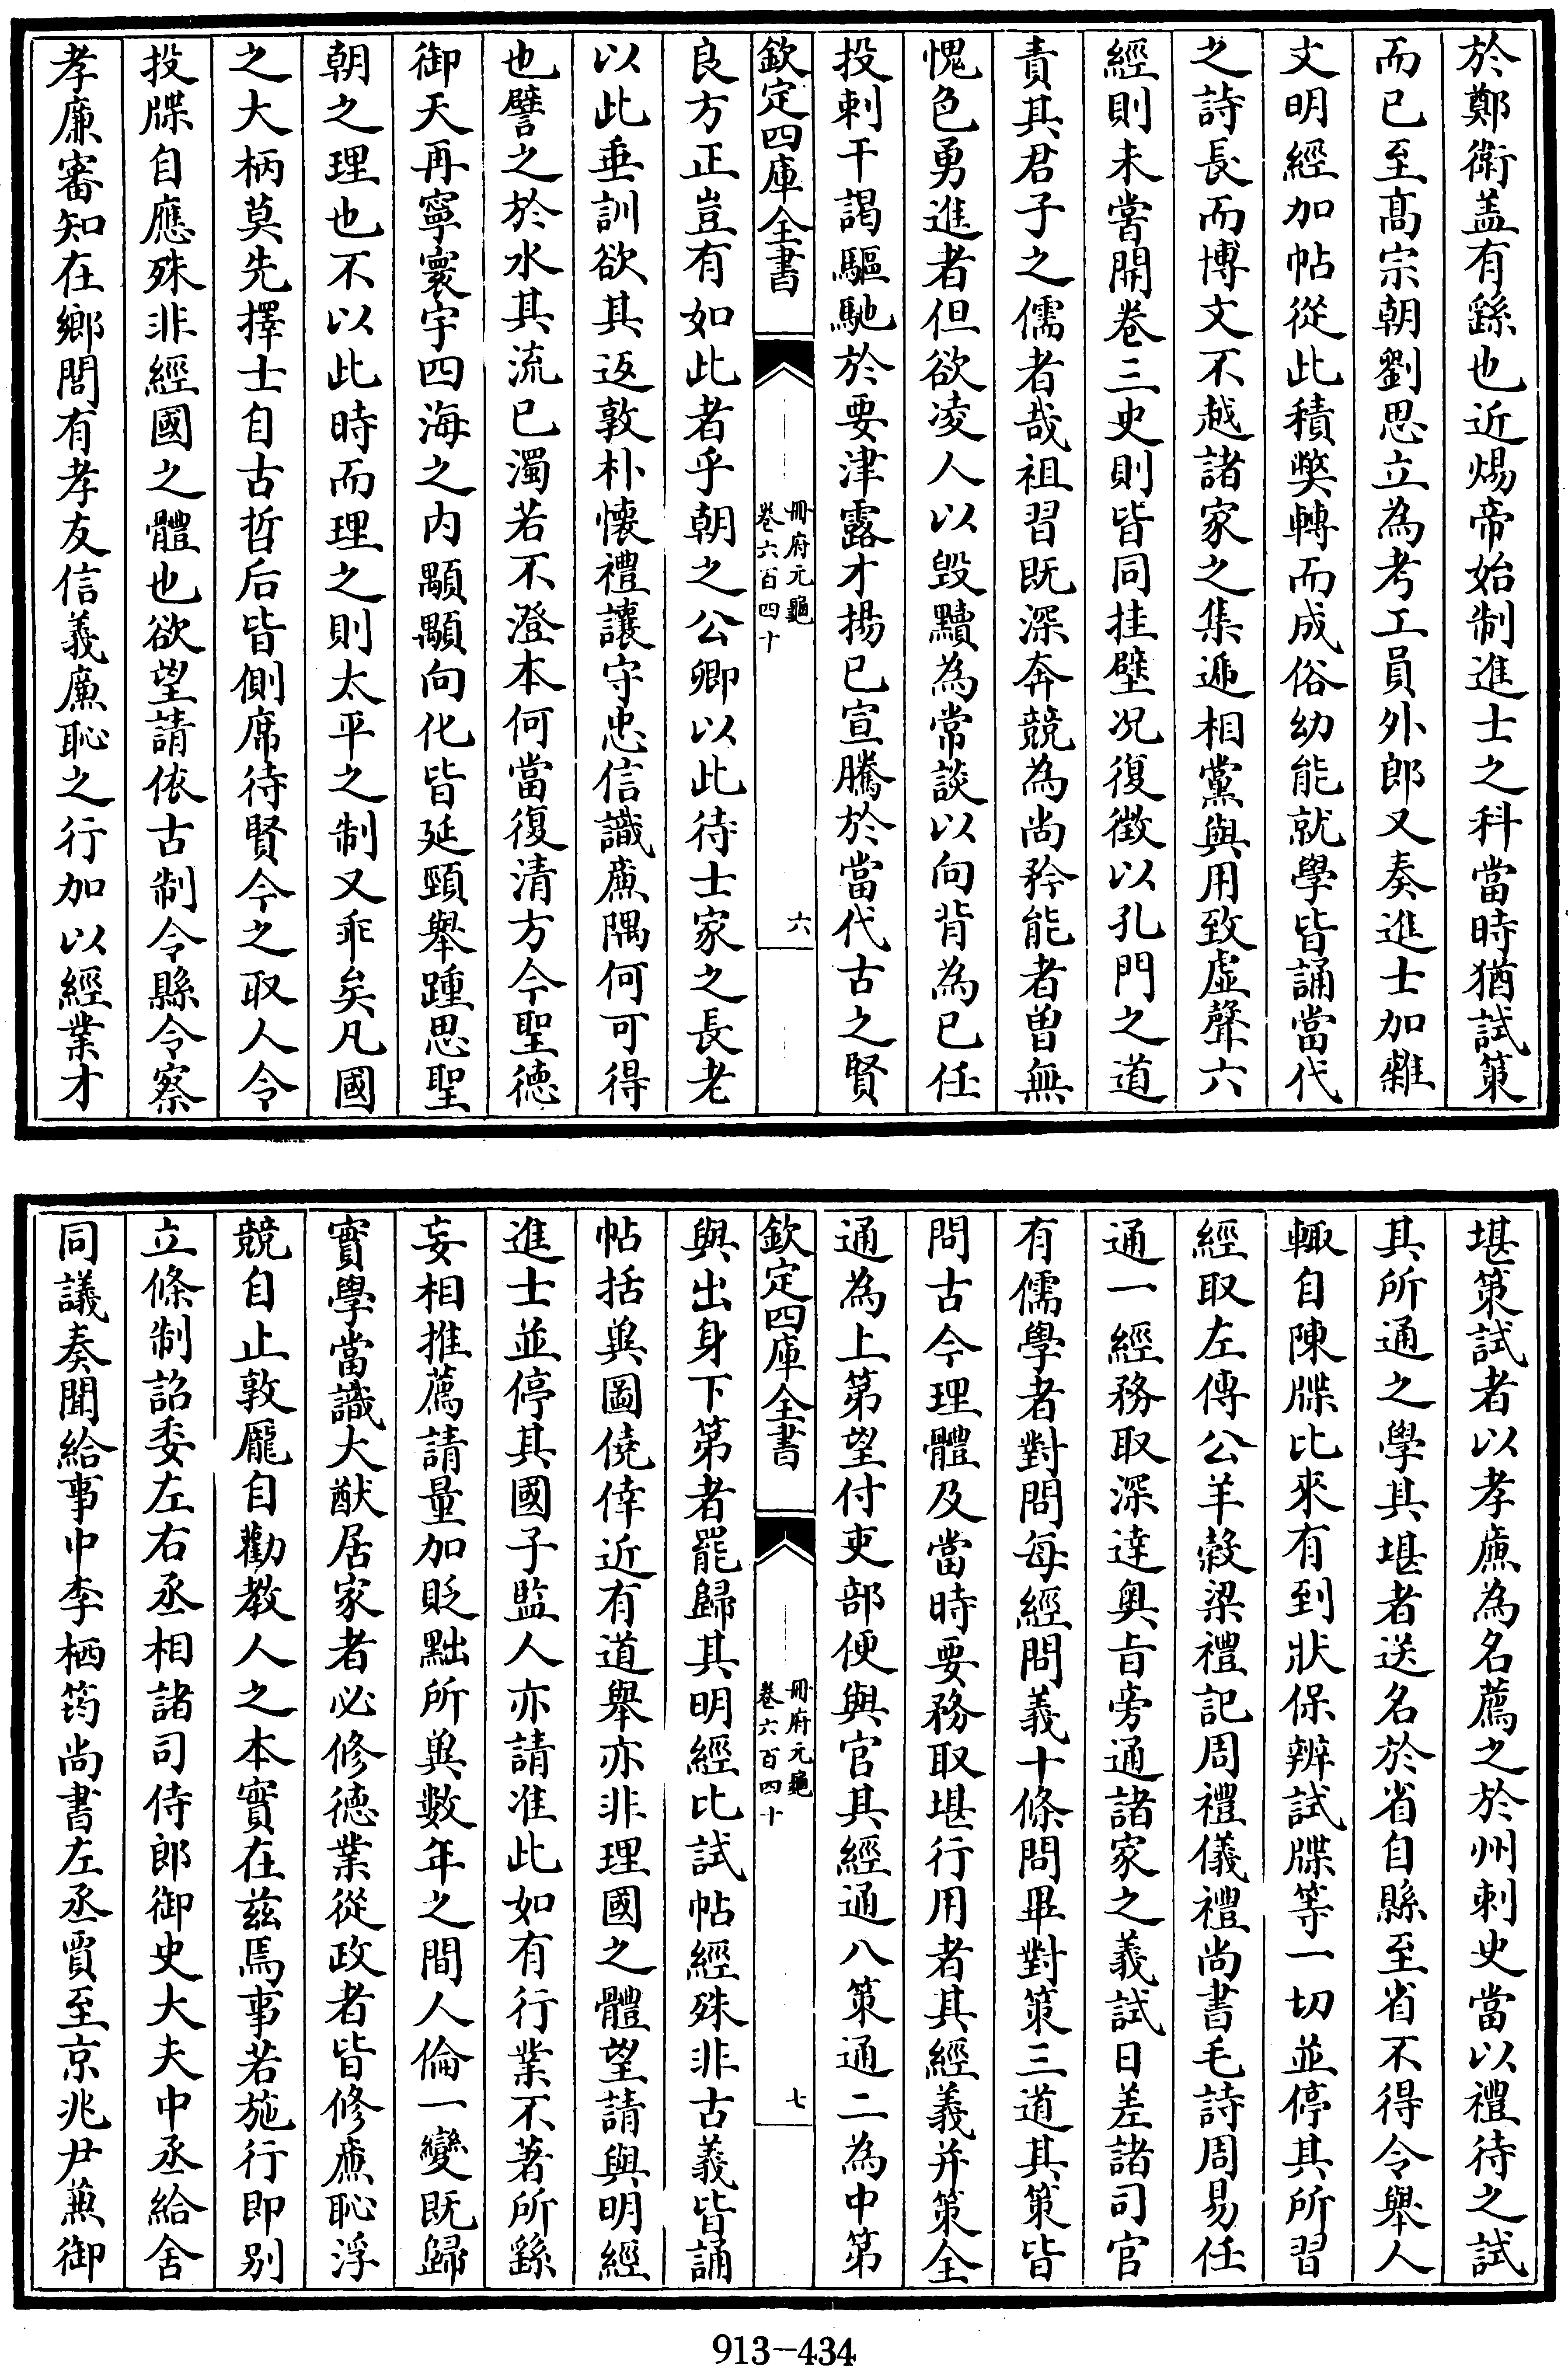 於鄭衛盖有繇也近煬帝始制進士之科當時猶試策
而已至髙宗朝劉思立為考工員外郎又奏進士加雜
文明經加帖從此積獘轉而成俗幼能就學皆誦當代
之詩長而博文不越諸家之集遞相黨與用致虛聲六
經則未嘗開卷三史則皆同挂壁况復徴以孔門之道
責其君子之儒者哉祖習既深奔競為尚矜能者曽無
愧色勇進者但欲凌人以毁黷為常談以向背為已任
投刺干謁驅馳於要津露才揚已宣騰於當代古之賢
欽定四庫全書
冊府元龜
卷六百四十
六
良方正豈有如此者乎朝之公卿以此待士家之長老
以此垂訓欲其返敦朴懐禮讓守忠信識廉隅何可得
也譬之於水其流已濁若不澄本何當復清方今聖德
御天再寧寰宇四海之内顒顒向化皆延頸舉踵思聖
朝之理也不以此時而理之則太平之制又乖矣凡國
之大柄莫先擇士自古哲后皆側席待賢今之取人令
投牒自應殊非經國之體也欲望請依古制令縣令察
孝廉審知在鄉閭有孝友信義廉恥之行加以經業才
堪策試者以孝廉為名薦之於州刺史當以禮待之試
其所通之學其堪者送名於省自縣至省不得令舉人
輙自陳牒比來有到狀保辨試牒等一切並停其所習
經取左傳公羊穀梁禮記周禮儀禮尚書毛詩周易任
通一經務取深逹奥㫖旁通諸家之義試日差諸司官
有儒學者對問每經問義十條問畢對策三道其策皆
問古今理體及當時要務取堪行用者其經義并策全
通為上第望付吏部便與官其經通八策通二為中第
欽定四庫全書
冊府元龜
卷六百四十
七
與出身下第者罷歸其明經比試帖經殊非古義皆誦
帖括兾圖僥倖近有道舉亦非理國之體望請與明經
進士並停其國子監人亦請准此如有行業不著所繇
妄相推薦請量加貶黜所兾數年之間人倫一變既歸
實學當識大猷居家者必修徳業從政者皆修廉恥浮
競自止敦龎自勸教人之本實在兹焉事若施行即别
立條制詔委左右丞相諸司侍郎御史大夫中丞給舍
同議奏聞給事中李栖筠尚書左丞賈至京兆尹兼御
913-434